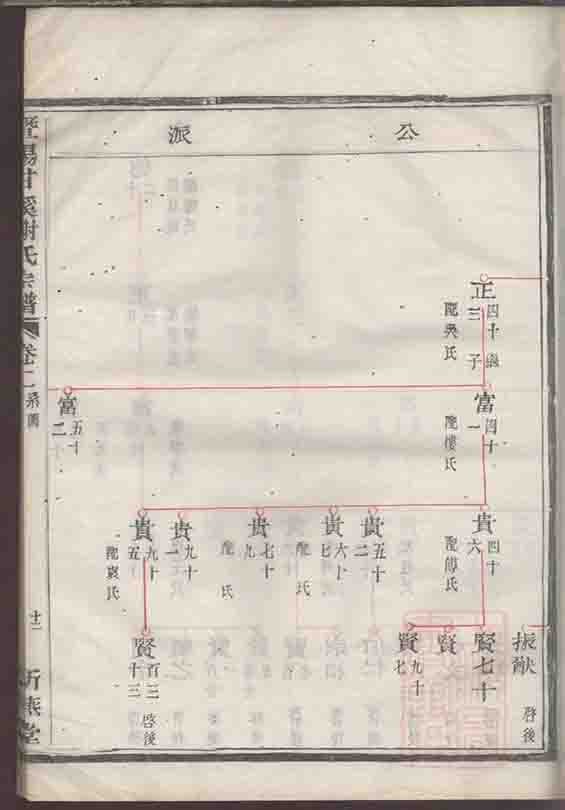 公派
正四十
三子
配吳氏
富四十一
配樓氏
富五十二
貴四十六
配傅氏
貴五十二
貴六十七
配 氏
貴七十九
配 氏
貴九十一
貴九十五
配袁氏
振猷 啓後
賢七十
賢
賢九十七
賢百三十三 啓後
暨陽甘溪謝氏宗譜
卷二
系圖